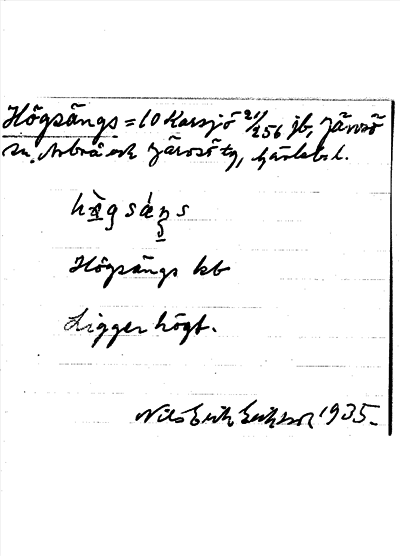 Högsängs = 10 Karsjö 21/256 jb, Järvsö
sn, Arbrå och Järvsö tg, Gävlebs l.
Högsängs kb
Ligger högt.
Nils Erik Eriksson 1935.